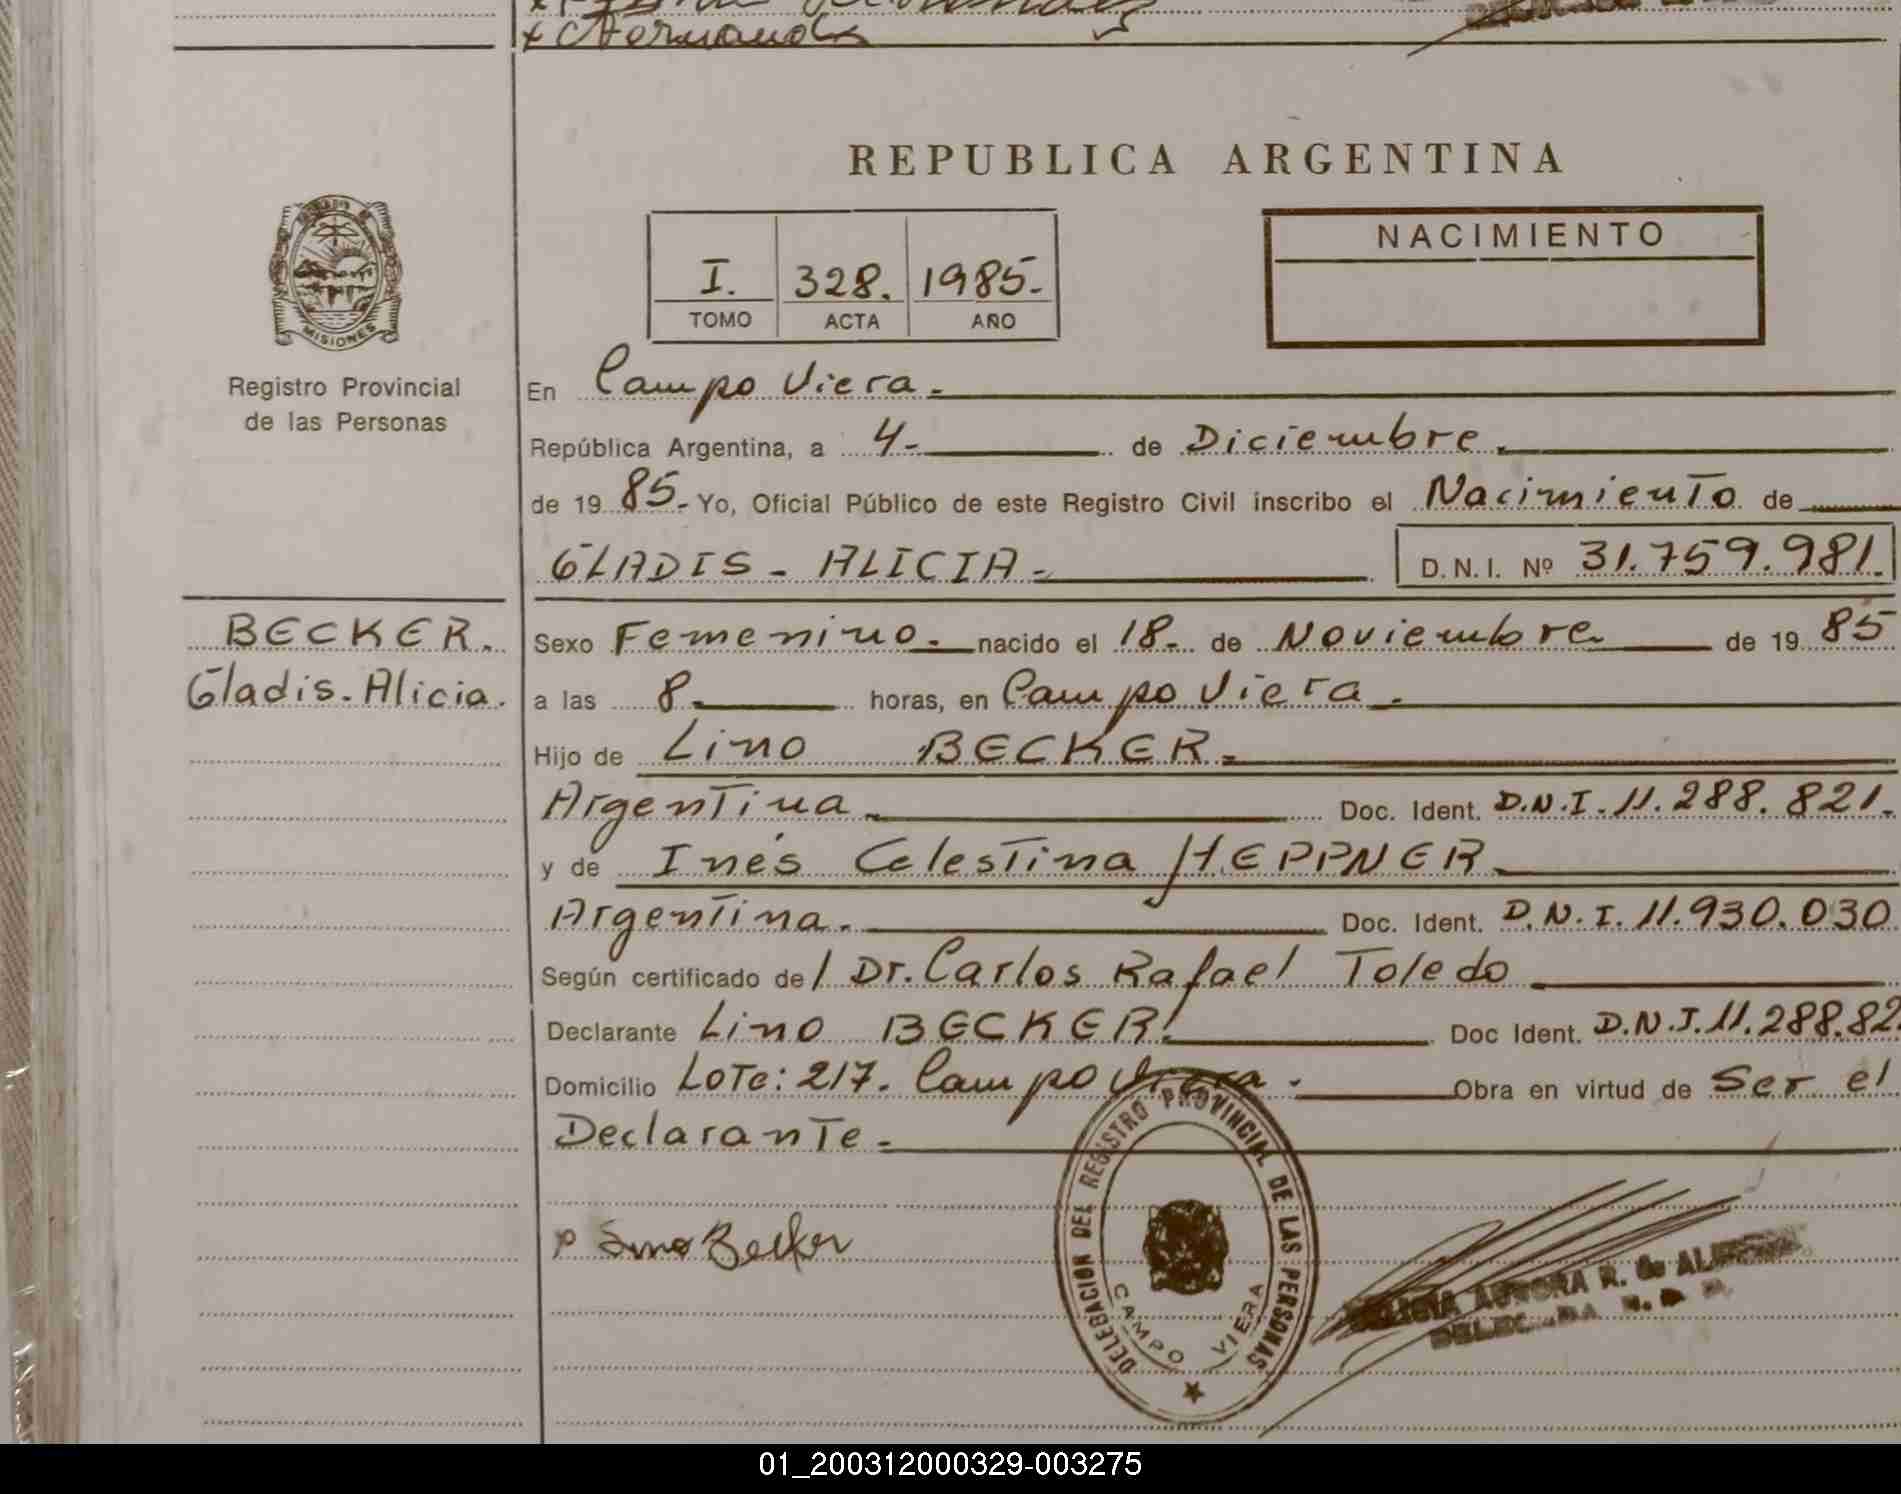 REPUBLICA ARGENTINA
I. 328. 1985.-
TOMO ACTA AÑO
NACIMIENTO
MISIONES
Registro Provincial
de las Personas
En Campo Viera.-
República Argentina, a 4.- de Diciembre.
de 19 85.- Yo, Oficial Público de este Registro Civil inscribo el Nacimiento de
GLADIS - ALICIA.- D.N.I. Nº 31.759.981.
BECKER.
Gladis. Alicia.
Sexo Femenino.- nacido el 18.- de Noviembre.- de 19 85
a las 8.- horas, en Campo Viera.-
Hijo de Lino BECKER.-
Argentina.- Doc. Ident. D.N.I. 11.288.821.-
y de Inés Celestina HEPPNER.-
Argentina.- Doc. Ident. D.N.I. 11.930.030
Según certificado de/ Dr. Carlos Rafael Toledo
Declarante Lino BECKER.- Doc Ident. D.N.I. 11.288.82
Domicilio Lote: 217. Campo Viera.- Obra en virtud de Ser el
Declarante.-
Lino Becker
DELEGACION DEL REGISTRO PROVINCIAL DE LAS PERSONAS
CAMPO VIERA
AURORA R. G.
01_200312000329-003275